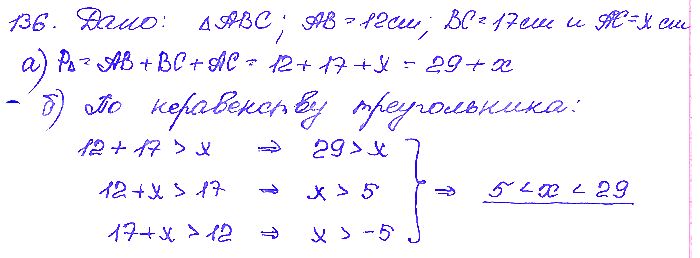 136. Дано: △ABC; AB = 12см; BC = 17см и AC = x см
а) P△ = AB + BC + AC = 12 + 17 + x = 29 + x
- б) По неравенству треугольника:
12 + 17 > x ⇒ 29 > x
12 + x > 17 ⇒ x > 5 } ⇒ 5 < x < 29
17 + x > 12 ⇒ x > -5